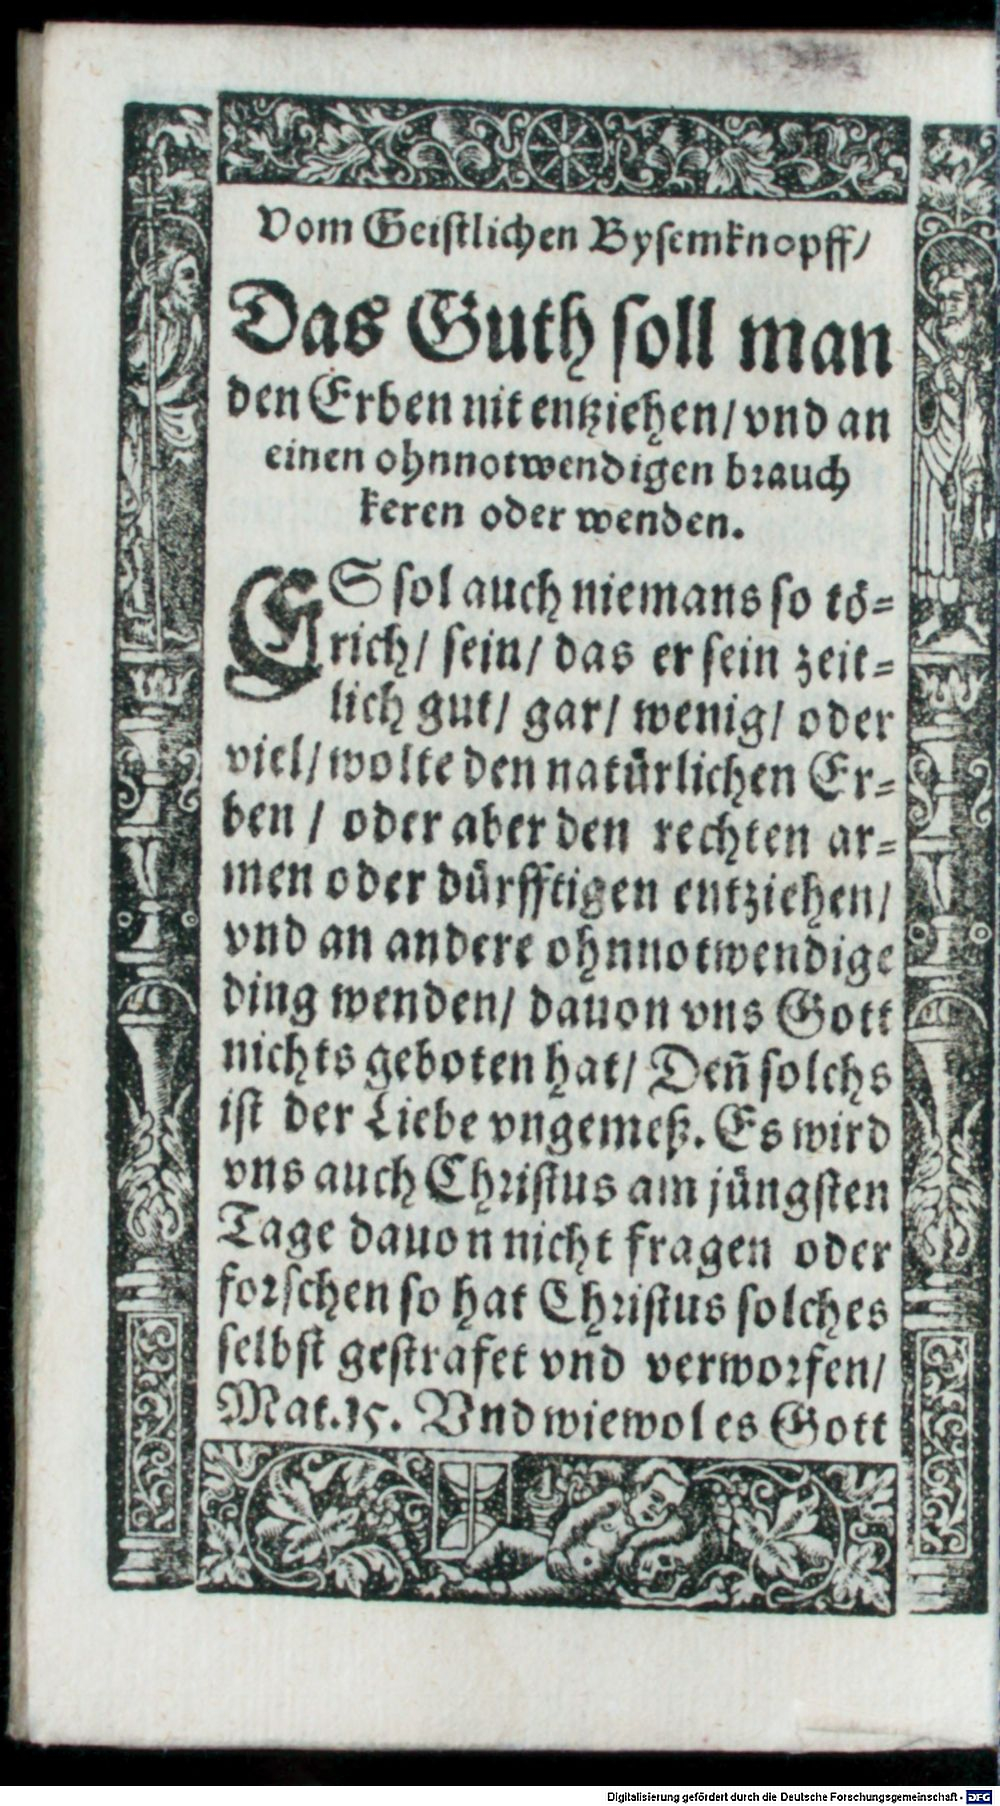 Vom Geistlichen Bysemknopff/
Das Guth soll man
den Erben nit entziehen/ vnd an
einen ohnnotwendigen brauch
keren oder wenden.
ES sol auch niemans so tö=
rich/ sein/ das er sein zeit=
lich gut/ gar/ wenig/ oder
viel/ wolte den natürlichen Er=
ben / oder aber den rechten ar=
men oder dürfftigen entziehen/
vnd an andere ohnnotwendige
ding wenden/ dauon vns Gott
nichts geboten hat/ Deñ solchs
ist der Liebe vngemeß. Es wird
vns auch Christus am jüngsten
Tage dauon nicht fragen oder
forschen so hat Christus solches
selbst gestrafet vnd verworfen/
Mat.15. Vnd wiewol es Gott
Digitalisierung gefördert durch die Deutsche Forschungsgemeinschaft - DFG